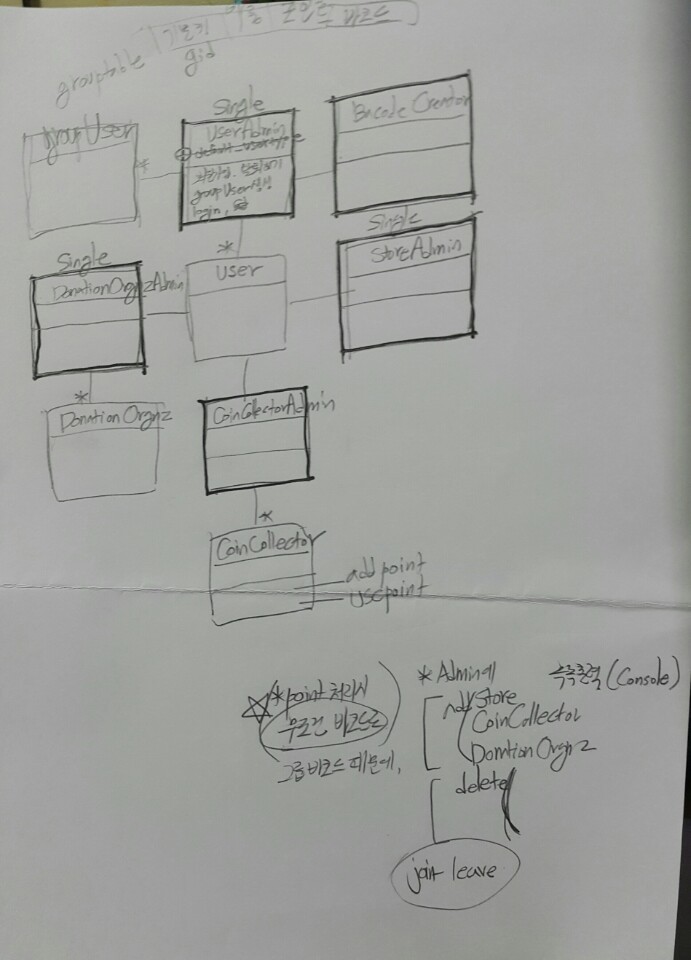 이름 포인트 바코드
grouptable
gid
groupUser
*
Single
UserAdmin
groupUser생성
Bacode Creator
Single
StoreAdmin
*
User
Single
DonationOrgnzAdmin
*
DonationOrgnz
CoinCollectorAdmin
*
CoinCollector
add point
use point
*point 처리시
무조건 바코드로
그룹바코드 때문에,
*Admin에
속속출력(Console)
add Store
CoinCollector
DonationOrgnz
delete
join leave